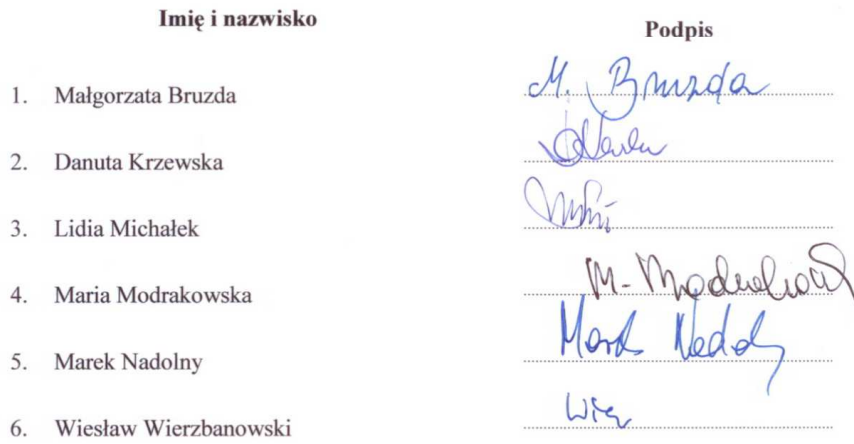 Imię i nazwisko
Podpis
1. Małgorzata Bruzda
M. Bruzda
2. Danuta Krzewska
3. Lidia Michałek
4. Maria Modrakowska
M.
5. Marek Nadolny
Marek
6. Wiesław Wierzbanowski